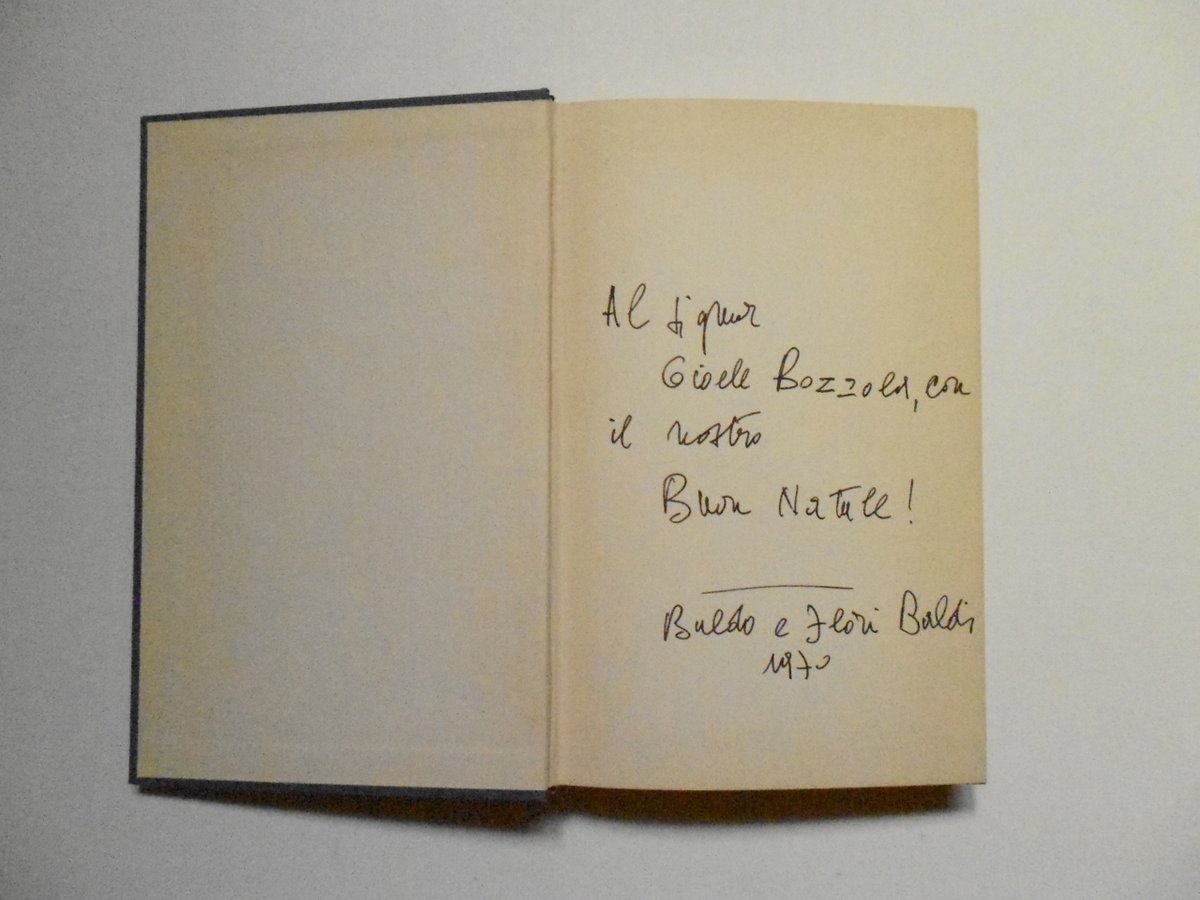 Al signor
Gioele Bozzola, con
il nostro
Buon Natale!
Baldo e Flori Baldi
1970